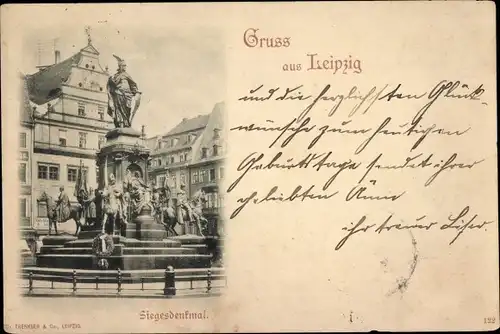 Gruss
aus Leipzig
und die herzlichsten Glück-
wünsche zum heutigen
Geburtstage sendet ihrer
geliebten
ihr treuer
Siegesdenkmal.
& Co., LEIPZIG.
122